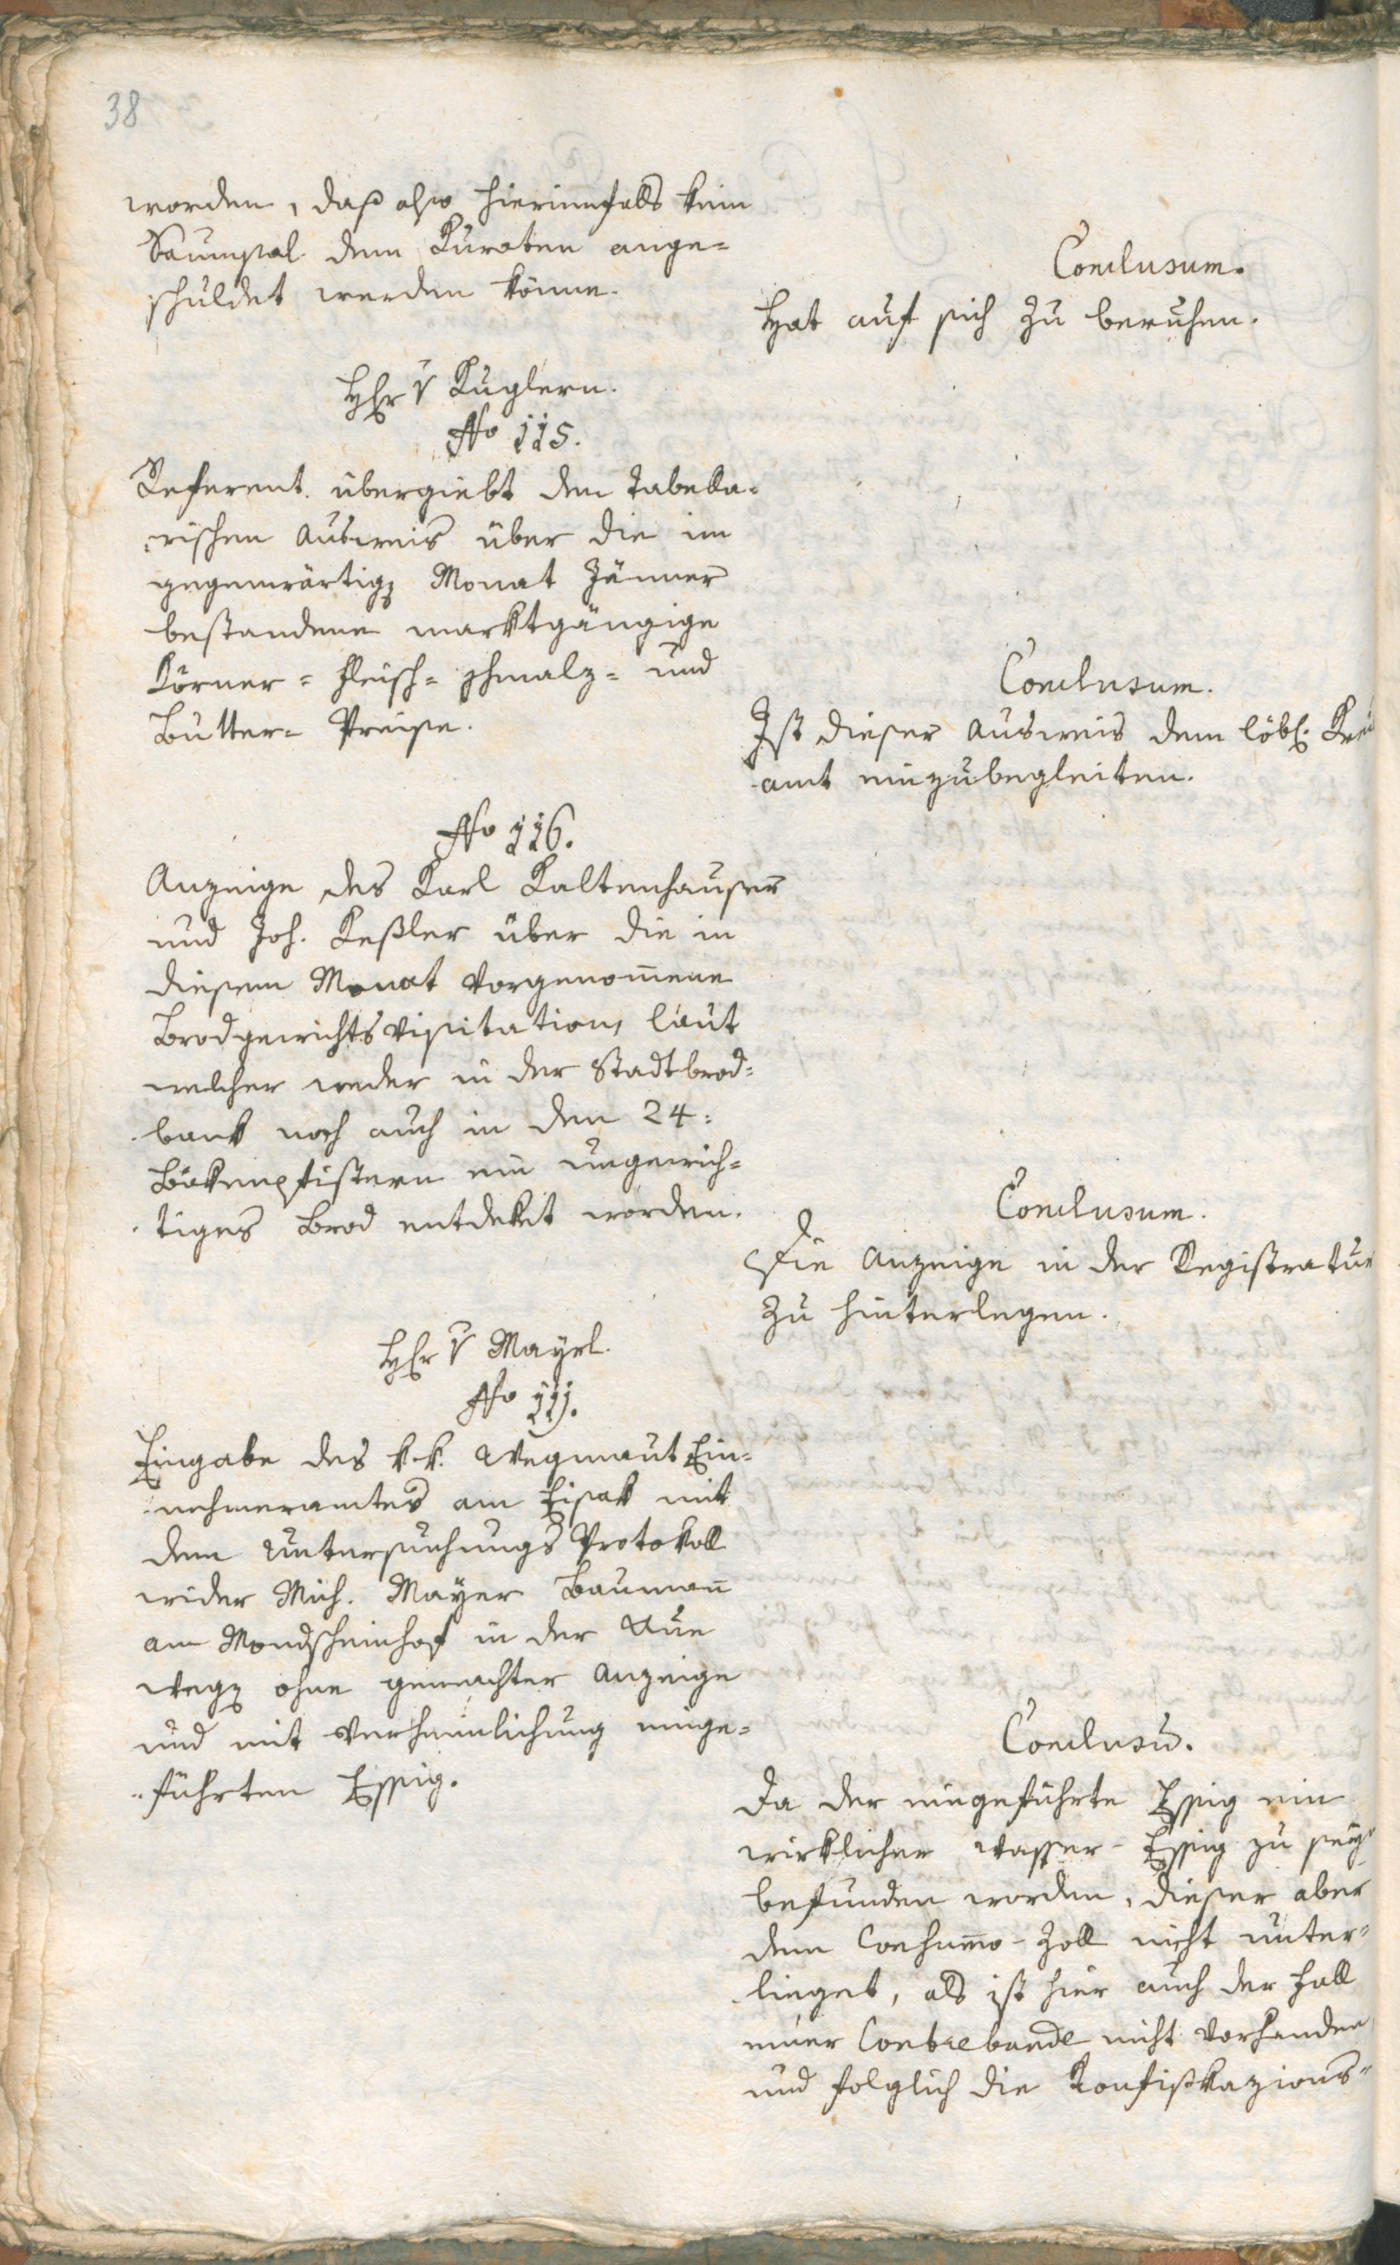 38
worden, daß also hierinnfalls kein
Saumsal dem Kuraten ange=
schuldet werden könne.
Conclusum.
Hat auf sich zu beruhen.
Hr v Kuglern.
No 115.
Referent übergiebt den Tabella=
rischen Ausweis über die im
gegenwärtig Monat Jänner
bestandene marktgängige
Körner= Fleisch= Schmalz= und
Butter= Preise.
Conclusum.
Ist dieser Ausweis dem löbl. Krei
amt einzubegleiten.
No 116.
Anzeige des Karl Kaltenhauser
und Joh. Keßler über die in
diesem Monat vorgenom̅ene
Brodgewichtsvisitation, laut
welcher weder in der Stadtbrod=
bank noch auch in den 24:
Bökenpfistern ein ungewich=
tiges Brod entdeket worden.
Conclusum.
Die Anzeige in der Registratur
zu hinterlegen.
Hr v Mayrl.
No 117.
Eingabe des k. k. Wegmaut Ein=
nehmeramtes am Eisak mit
dem Untersuchungs Protokoll
wider Mich. Mayer Bauman̅
am Mondscheinhof in der Aue
weg ohne gemachter Anzeige
und mit Verheimlichung einge=
führten Essig.
Conclusu̅.
Da der eingeführte Essig ein
wirklicher Wasser-Essig zu seyn
befunden worden, dieser aber
dem Consum̅o-Zoll nicht unter=
lieget, als ist hier auch der Fall
einer Contrebande nicht vorhanden
und folglich die Konfiskazions=